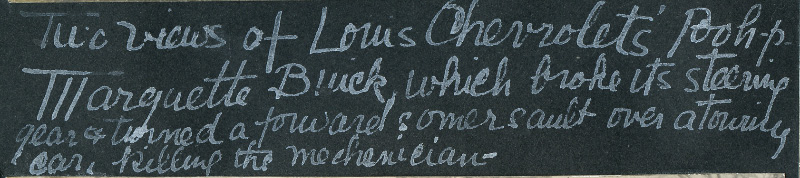 Two views of Louis Chevrolets' Pooh-p-
Marquette Buick, which broke its steering
gear & turned a forward somersault over a touring
car, killing the mechanician-